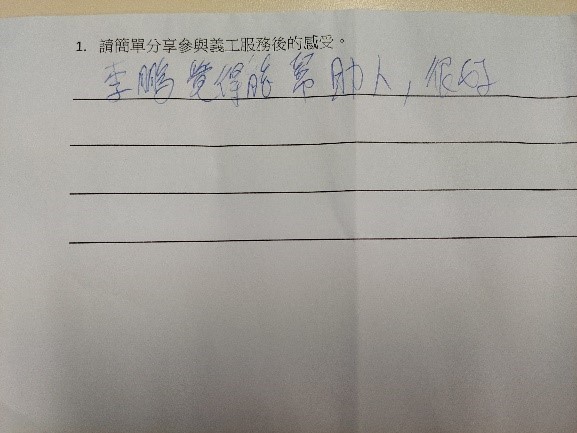 1. 請簡單分享參與義工服務後的感受。
李鵬覺得能幫助人,很好